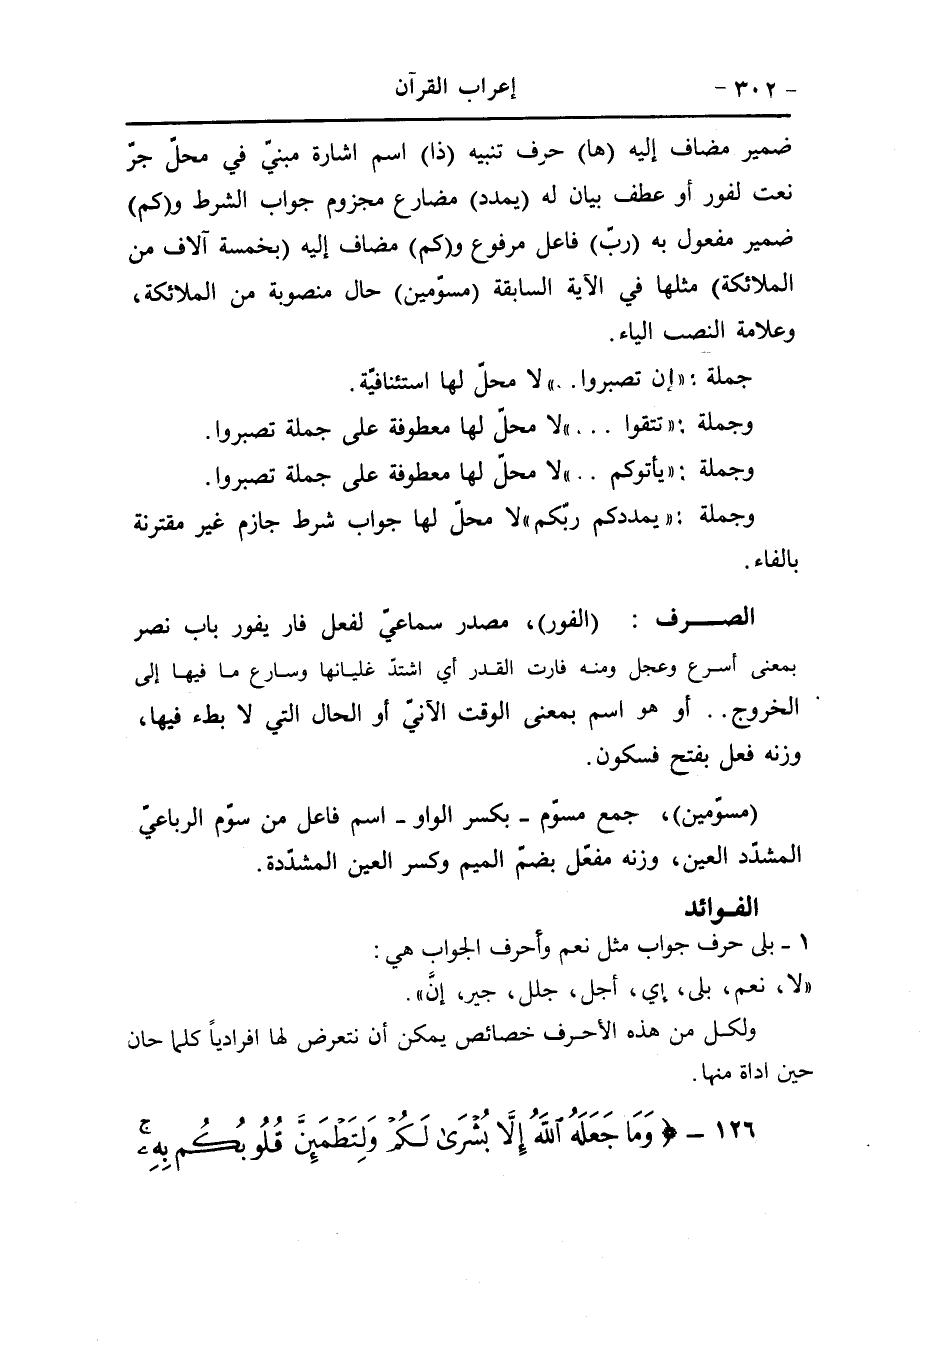 - ٣٠٢ - إعراب القرآن
ضمير مضاف إليه (ها) حرف تنبيه (ذا) اسم اشارة مبنيّ في محلّ جرّ
نعت لفور أو عطف بيان له (يمدد) مضارع مجزوم جواب الشرط و(كم)
ضمير مفعول به (ربّ) فاعل مرفوع و(كم) مضاف إليه (بخمسة آلاف من
الملائكة) مثلها في الآية السابقة (مسوّمين) حال منصوبة من الملائكة،
وعلامة النصب الياء.
جملة :«إن تصبروا. .»لا محلّ لها استئنافيّة.
وجملة :«تتقوا . . .»لا محلّ لها معطوفة على جملة تصبروا.
وجملة :«يأتوكم . .»لا محلّ لها معطوفة على جملة تصبروا.
وجملة :«يمددكم ربّكم»لا محلّ لها جواب شرط جازم غير مقترنة
بالفاء.
الصـــرف : (الفور)، مصدر سماعيّ لفعل فار يفور باب نصر
بمعنى أسرع وعجل ومنه فارت القدر أي اشتدّ غليانها وسارع ما فيها إلى
الخروج.. أو هو اسم بمعنى الوقت الآنيّ أو الحال التي لا بطء فيها،
وزنه فعل بفتح فسكون.
(مسوّمين)، جمع مسوّم ـ بكسر الواو ـ اسم فاعل من سوّم الرباعيّ
المشدّد العين، وزنه مفعّل بضمّ الميم وكسر العين المشدّدة.
الفـوائد
١ ـ بلى حرف جواب مثل نعم وأحرف الجواب هي :
«لا، نعم، بلى، إي، أجل، جلل، جير، إنَّ».
ولكـل من هذه الأحرف خصائص يمكن أن نتعرض لها افرادياً كلما حان
حين اداة منها.
١٢٦ ـ ﴿ وَمَا جَعَلَهُ ٱللَّهُ إِلَّا بُشْرَىٰ لَكُمْ وَلِتَطْمَئِنَّ قُلُوبُكُم بِهِۦۗ